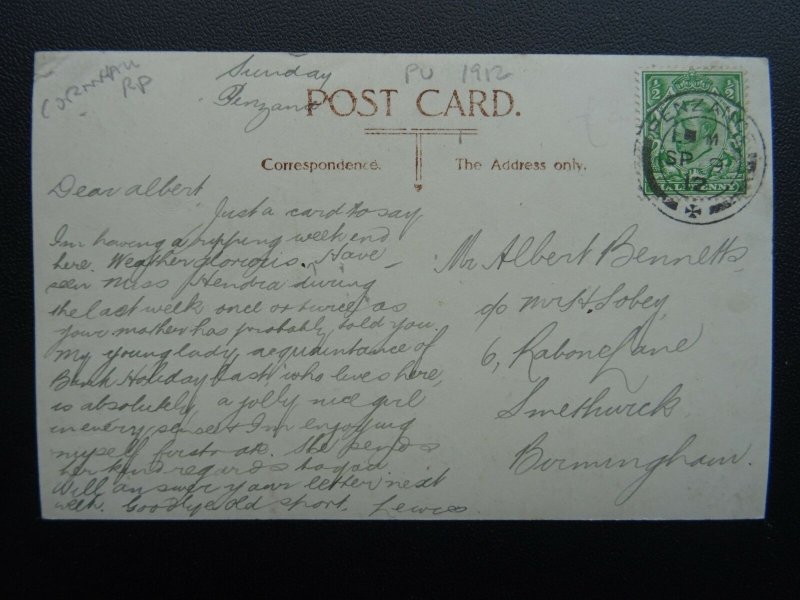 CORNWALL
RP
PU 1912
Sunday
Penzance
POST CARD.
Correspondence.
The Address only.
½ ½
HALFPENNY
PENZANCE
SP
12
Dear Albert
Just a card to say
I'm having a ripping week end
here. Weather glorious. Have
seen Miss Hendra during
the last week once or twice as
your mother has probably told you
My young lady, acquaintance of
Bank Holiday last who lives here,
is absolutely a jolly nice girl
in every sense & I'm enjoying
myself first rate. She sends
her kind regards to you
Will answer your letter next
week. Goodbye old sport. Lewis
Mr Albert Bennetts
c/o Mr H. Sobey,
6, Rabone Lane
Smethwick
Birmingham.